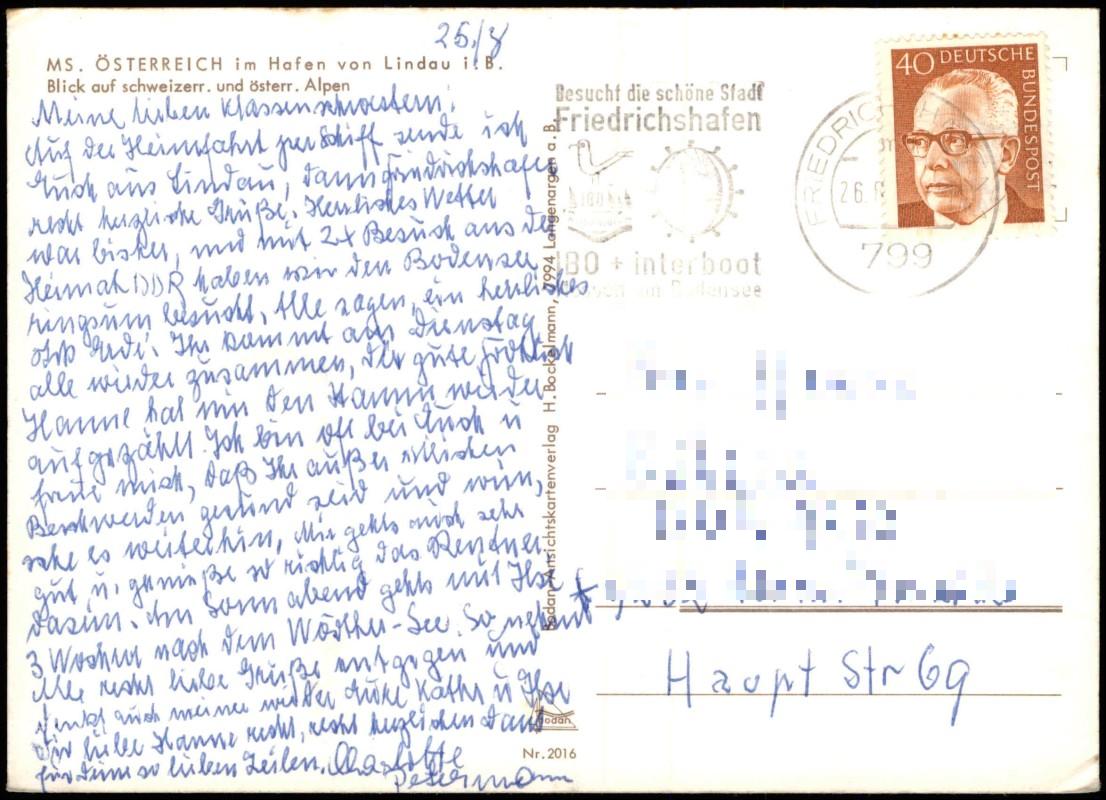 25./8
MS. ÖSTERREICH im Hafen von Lindau i. B.
Blick auf schweizerr. und österr. Alpen
Meine lieben Klassenschwestern!
Auf der Heimfahrt per Schiff sende ich
Euch aus Lindau, dann Friedrichshafen
recht herzliche Grüße. Herrliches Wetter
war bisher, und mit 2x Besuch aus der
Heimat DDR haben wir den Bodensee
ringsum besucht, Alle sagen, ein herrliches
Stck Erde. Ihr kommt am Dienstag
alle wieder zusammen, der gute
Hanne hat mir den wieder
aufgezählt. Ich bin oft bei Euch u
freue mich, daß Ihr außer
Beschwerden gesund seid und wün,
sche es weiterhin, Mir gehts auch sehr
gut u. genieße so richtig das Rentner,
dasein. Am Sonnabend gehts mit Ilse
3 Wochen nach dem Wörther-See. So nehmt
Alle recht liebe Grüße entgegen und
denkt auch meiner wieder Eure Käthe u Ilse
Dir liebe Hanne recht, recht herzlichen Dank
für Deine so lieben Zeilen. Charlotte
Petermann
Bodan-Ansichtskartenverlag H. Bockelmann, 7994 Langenargen a. B.
Bodan
Nr. 2016
Besucht die schöne Stadt
Friedrichshafen
IBO
IBO + interboot
Messen am Bodensee
FRIEDRICHSH
26.
799
40 DEUTSCHE
BUNDESPOST
Haupt Str 69